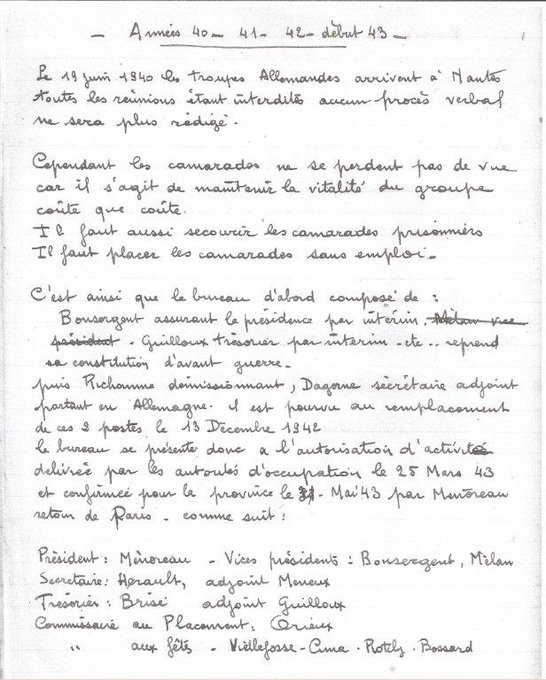 - Années 40 - 41 - 42 - début 43 -
Le 19 juin 1940 les troupes Allemandes arrivent à Nantes
toutes les réunions étant interdites aucun procès verbal
ne sera plus rédigé.
Cependant les camarades ne se perdent pas de vue
car il s'agit de maintenir la vitalité du groupe
coûte que coûte.
Il faut aussi secourir les camarades prisonniers
Il faut placer les camarades sans emploi.
C'est ainsi que le bureau d'abord composé de :
Bonsergent assurant la présidence par intérim, Mélan vice
président - Guilloux trésorier par interim - etc... reprend
sa constitution d'avant guerre.
puis Richomme démissionnant, Dagorne sécrétaire adjoint
partant en Allemagne. il est pourvu au remplacement
de ces 2 postes le 13 Décembre 1942
le bureau se présente donc a l'autorisation d'activité
délivrée par les autorités d'occupation le 25 Mars 43
et confirmée pour la province le 31 - Mai 43 par Menoreau
retour de Paris - comme suit :
Président : Ménoreau - Vices présidents : Bonsergent, Mélan
Secretaire : Herault, adjoint Meneux
Trésorier : Brisé adjoint Guilloux
Commissaire au Placement : Orieux
" aux fêtes - Viellefosse - Cima - Rotily - Bossard